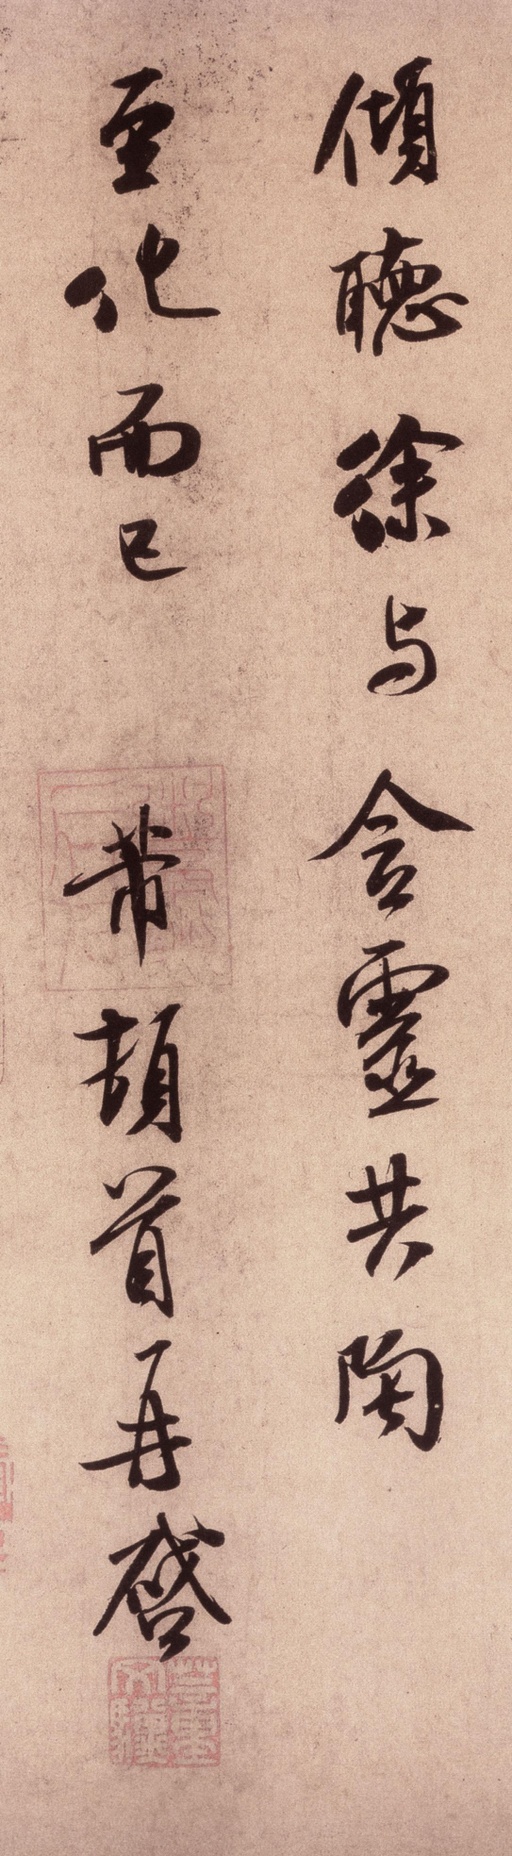 傾聽徐与含靈共陶
至化而已 芾頓首再啓